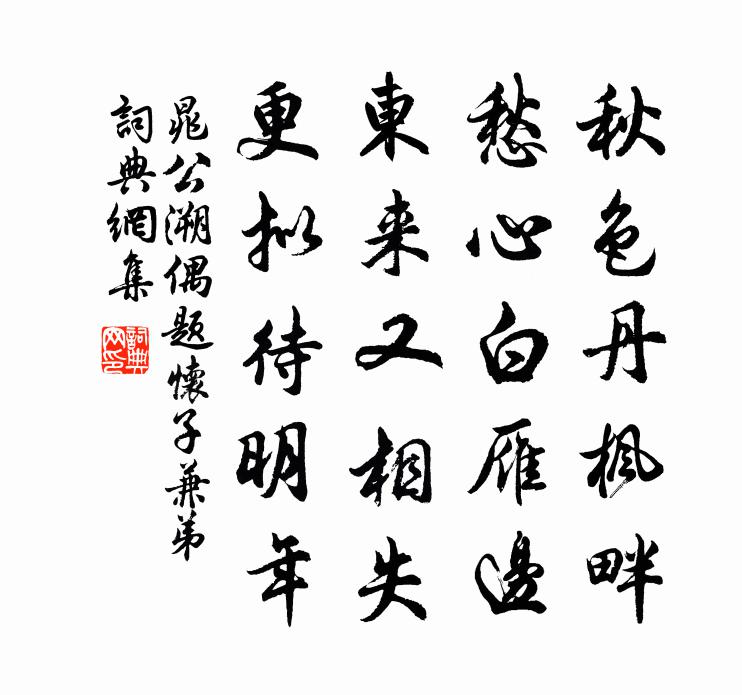 秋色丹枫畔
愁心白雁邊
東来又相失
更拟待明年
晁公溯偶题懷子兼弟
詞典網集
詞典网印